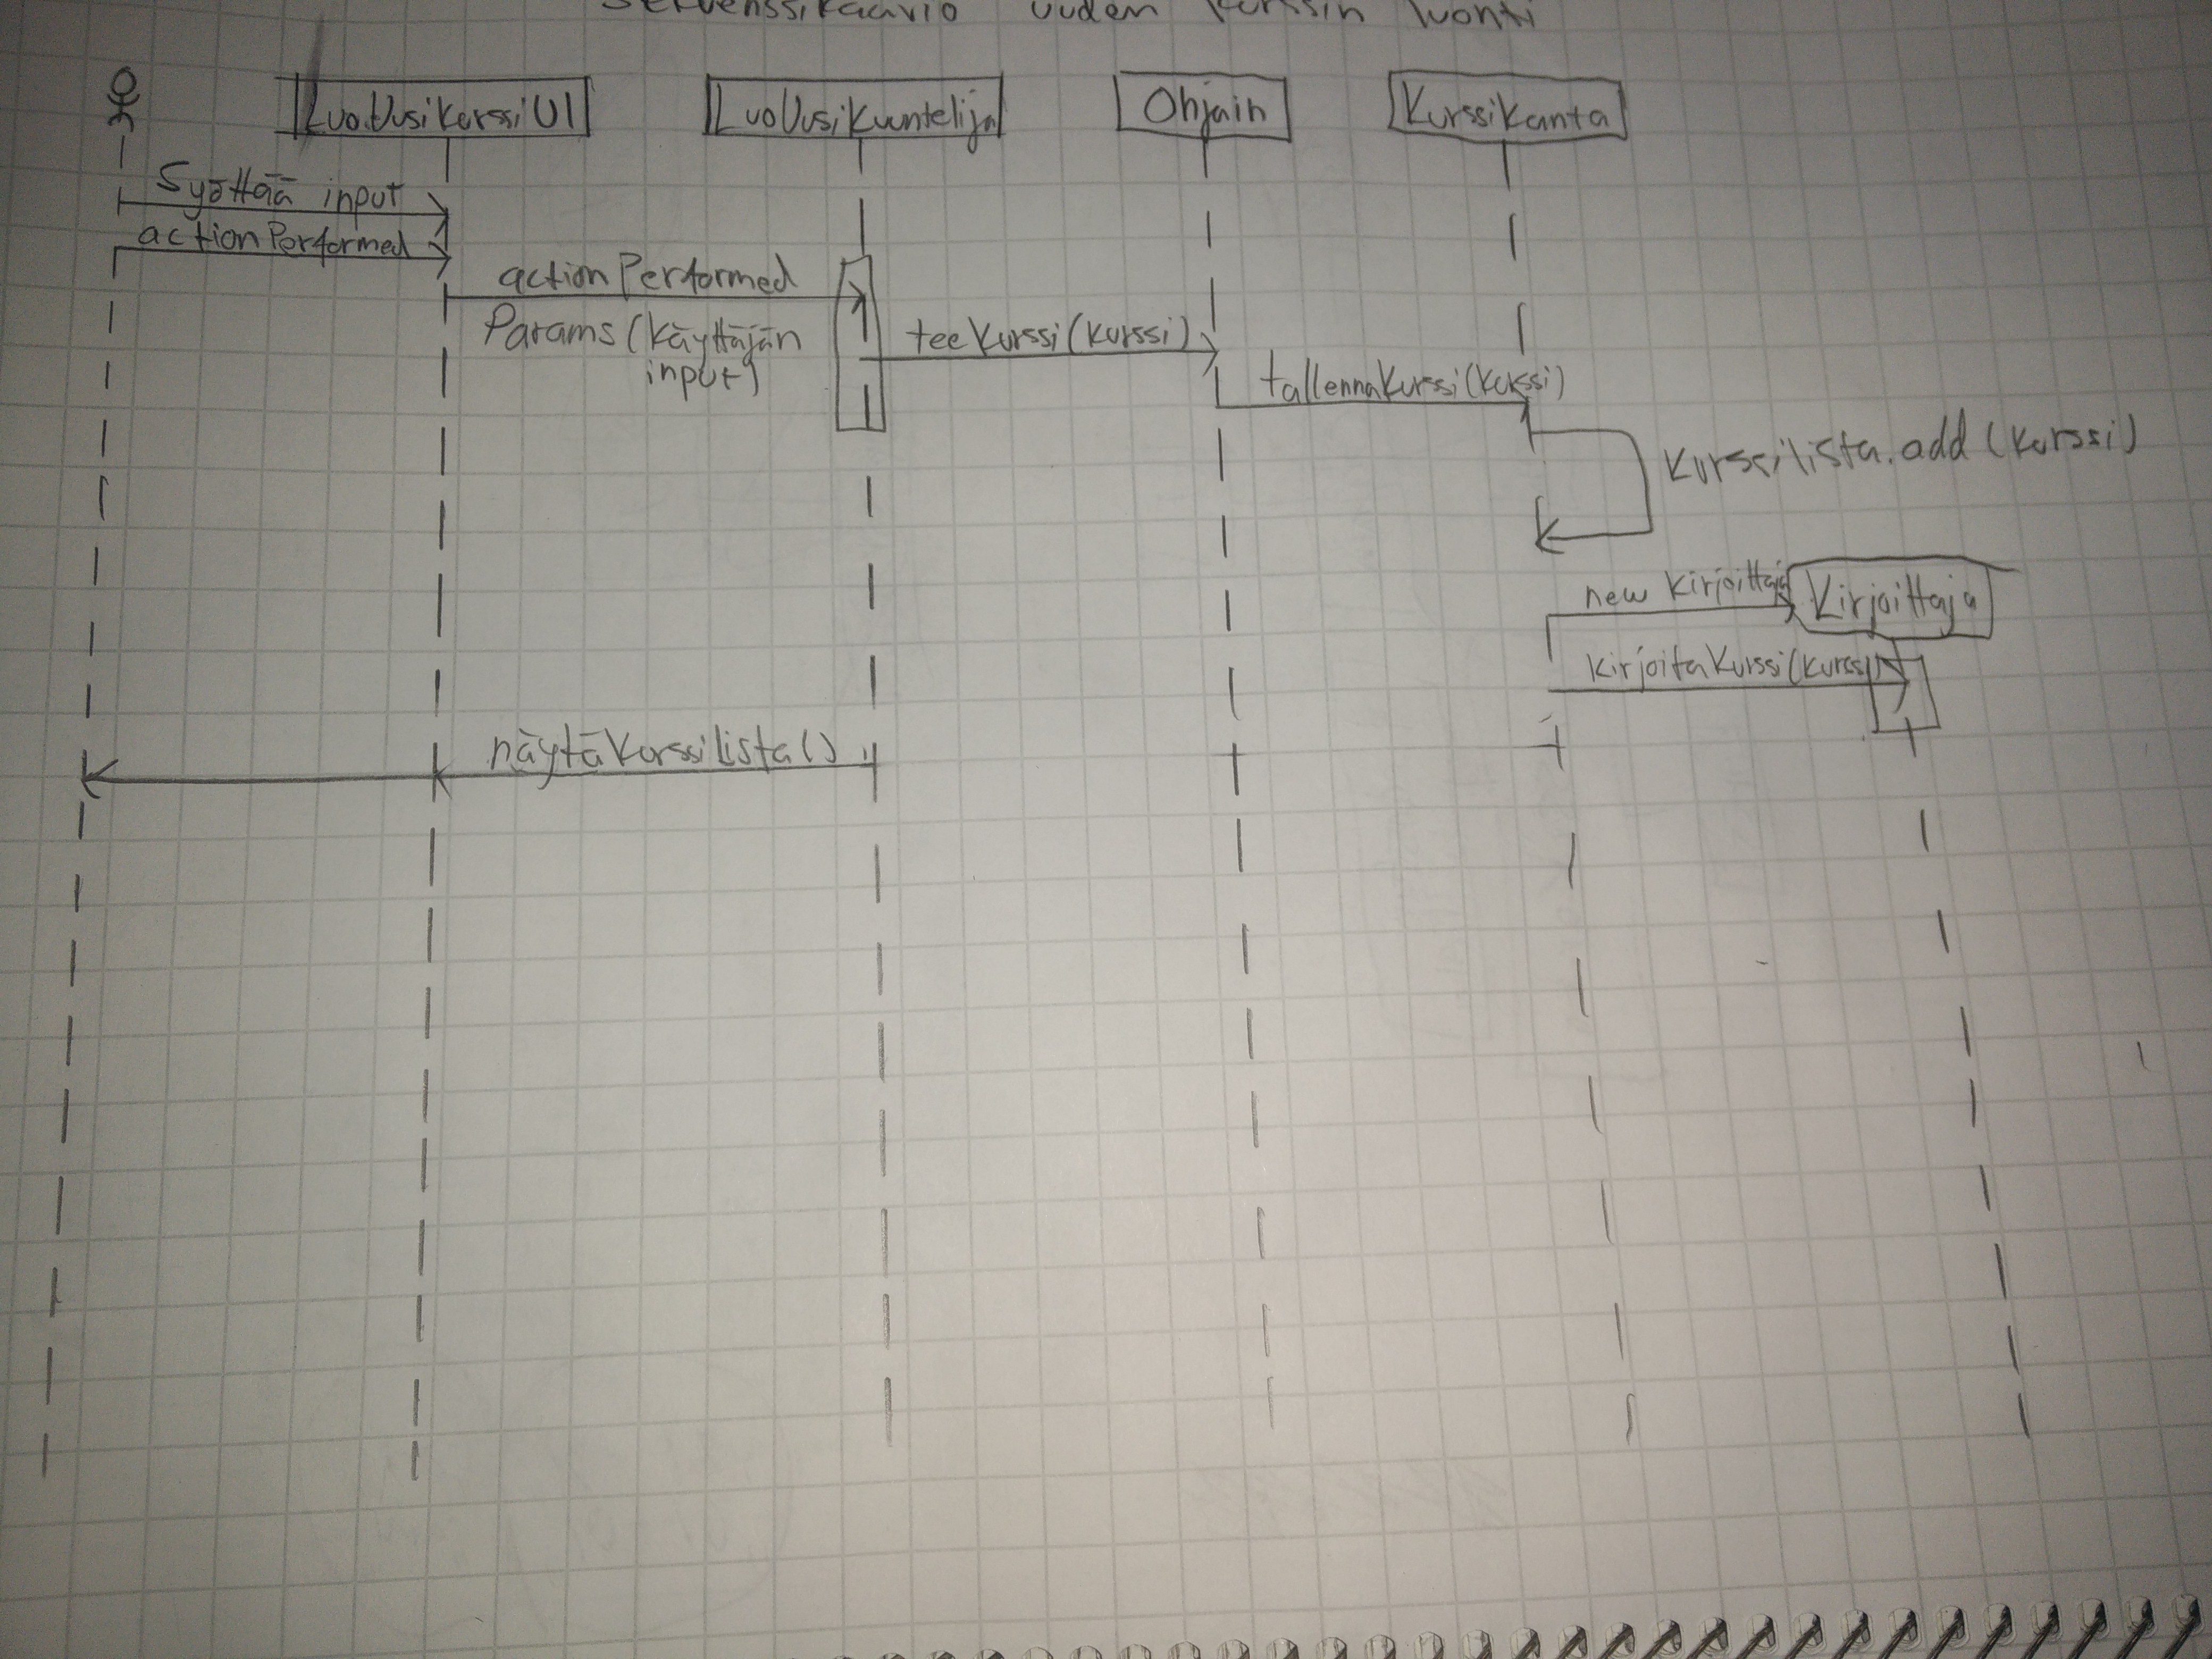 Sekvenssikaavio uuden kurssin luonti
LuoUusiKurssiUI
LuoUusiKuuntelija
Ohjain
KurssiKanta
Syöttää input
actionPerformed
actionPerformed
Params (käyttäjän
input)
teeKurssi(kurssi)
tallennaKurssi(kurssi)
Kurssilista.add(kurssi)
new Kirjoittaja
Kirjoittaja
KirjoitaKurssi(kurssi)
näytäKurssiLista()